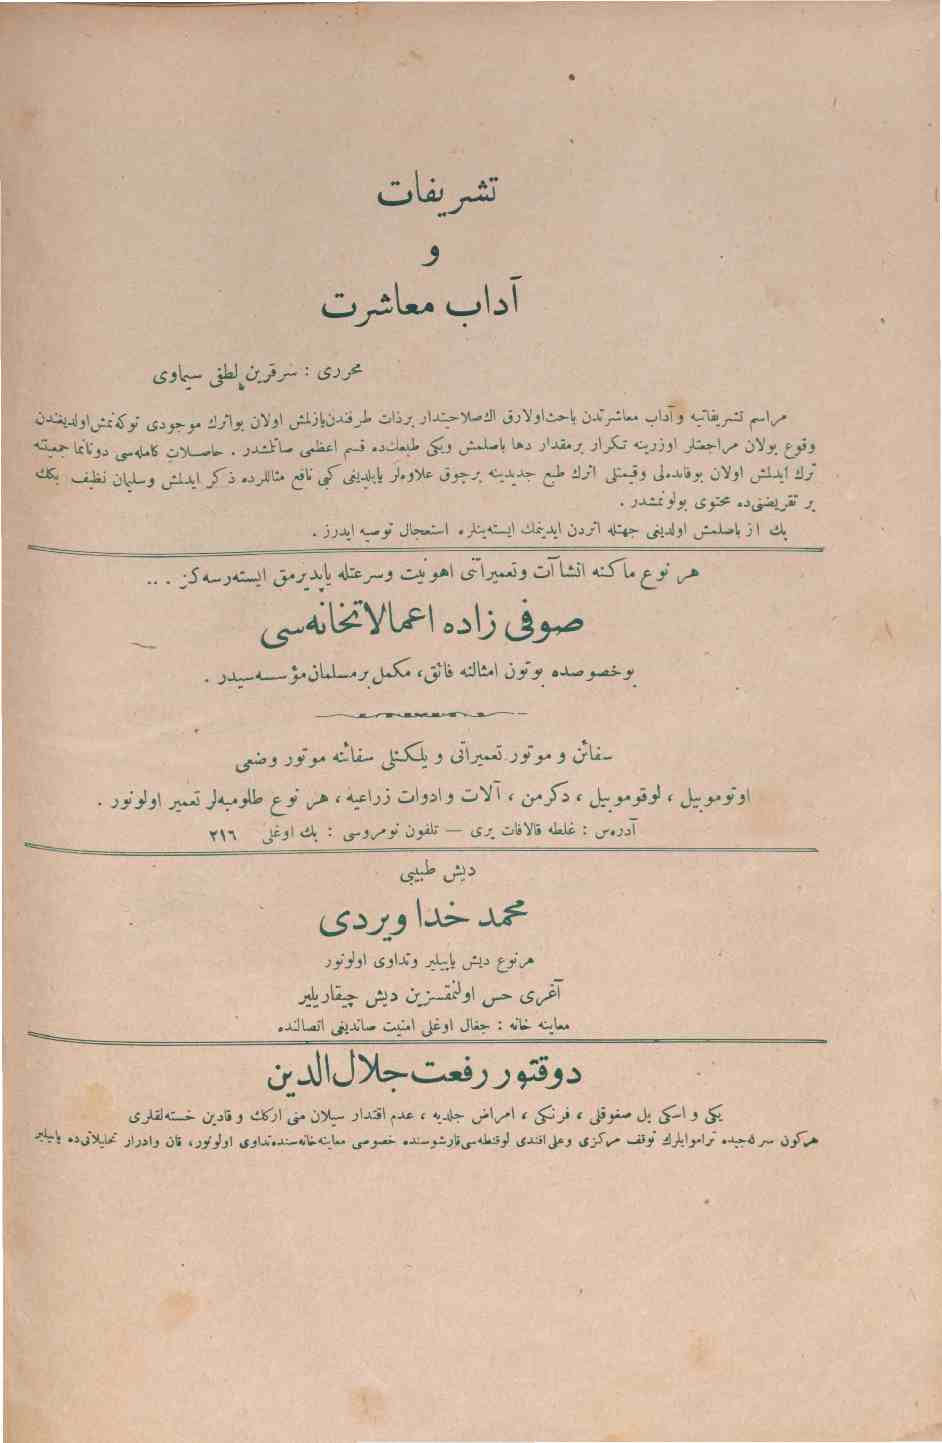 تشریفات
و
آداب معاشرت
محرری : سرقرین لطفی سیماوی
مراسم تشریفاتیه و آداب معاشرتدن باحث اولارق اك صلاحیتدار بر ذات طرفندن یازلمش اولان بو اثرك موجودی توكه نمش اولدیغندن
وقوع بولان مراجعتلر اوزرینه تكرار بر مقدار دها باصلمش ویكی طبعك ده قسم اعظمی صاتلمشدر . حاصلات كامله سی دونانما جمعیتنه
ترك ایدلمش اولان بو فائده لی وقیمتلی اثرك طبع جدیدینه بر چوق علاوه لر یاپلدیغی كبی نافع مثاللرده ذكر ایدلمش وسلیمان نظیف بكك
بر تقریضنی ده محتوی بولونمشدر .
پك از باصلمش اولدیغی جهتله اثردن ایدینمك ایسته ینلره استعجال توصیه ایدرز .
هر نوع ماكنه انشاآت وتعمیراتنی اهونیت وسرعتله یاپدیرمق ایسته رسه كز . . .
صوفی زاده اعمالاتخانه سی
بو خصوصده بوتون امثالنه فائق، مكمل بر مسلمان مؤسسه سیدر .
سفائن و موتور تعمیراتی و یلكنلی سفائنه موتور وضعی
اوتوموبیل ، لوقوموبیل ، دكرمن ، آلات وادوات زراعیه ، هر نوع طلومبه لر تعمیر اولونور .
آدره س : غلطه قالافات یری — تلفون نومروسی : بك اوغلی ٢١٦
دیش طبیبی
محمد خدا ویردی
هر نوع دیش یاپیلیر وتداوی اولونور
آغری حس اولنمقسزین دیش چیقاریلیر
معاینه خانه : جغال اوغلی امنیت صاندیغی اتصالنده
دوقتور رفعت جلال الدین
یكی و اسكی بل صغوقلغی ، فرنكی ، امراض جلدیه ، عدم اقتدار سیلان منی اركك و قادین خسته لقلری
هركون سركه جیده تراموایلرك توقف مركزی وعلی افندی لوقنطه سی قارشوسنده خصوصی معاینه خانه سنده تداوی اولونور، قان وادرار تحلیلاتی ده یاپیلیر